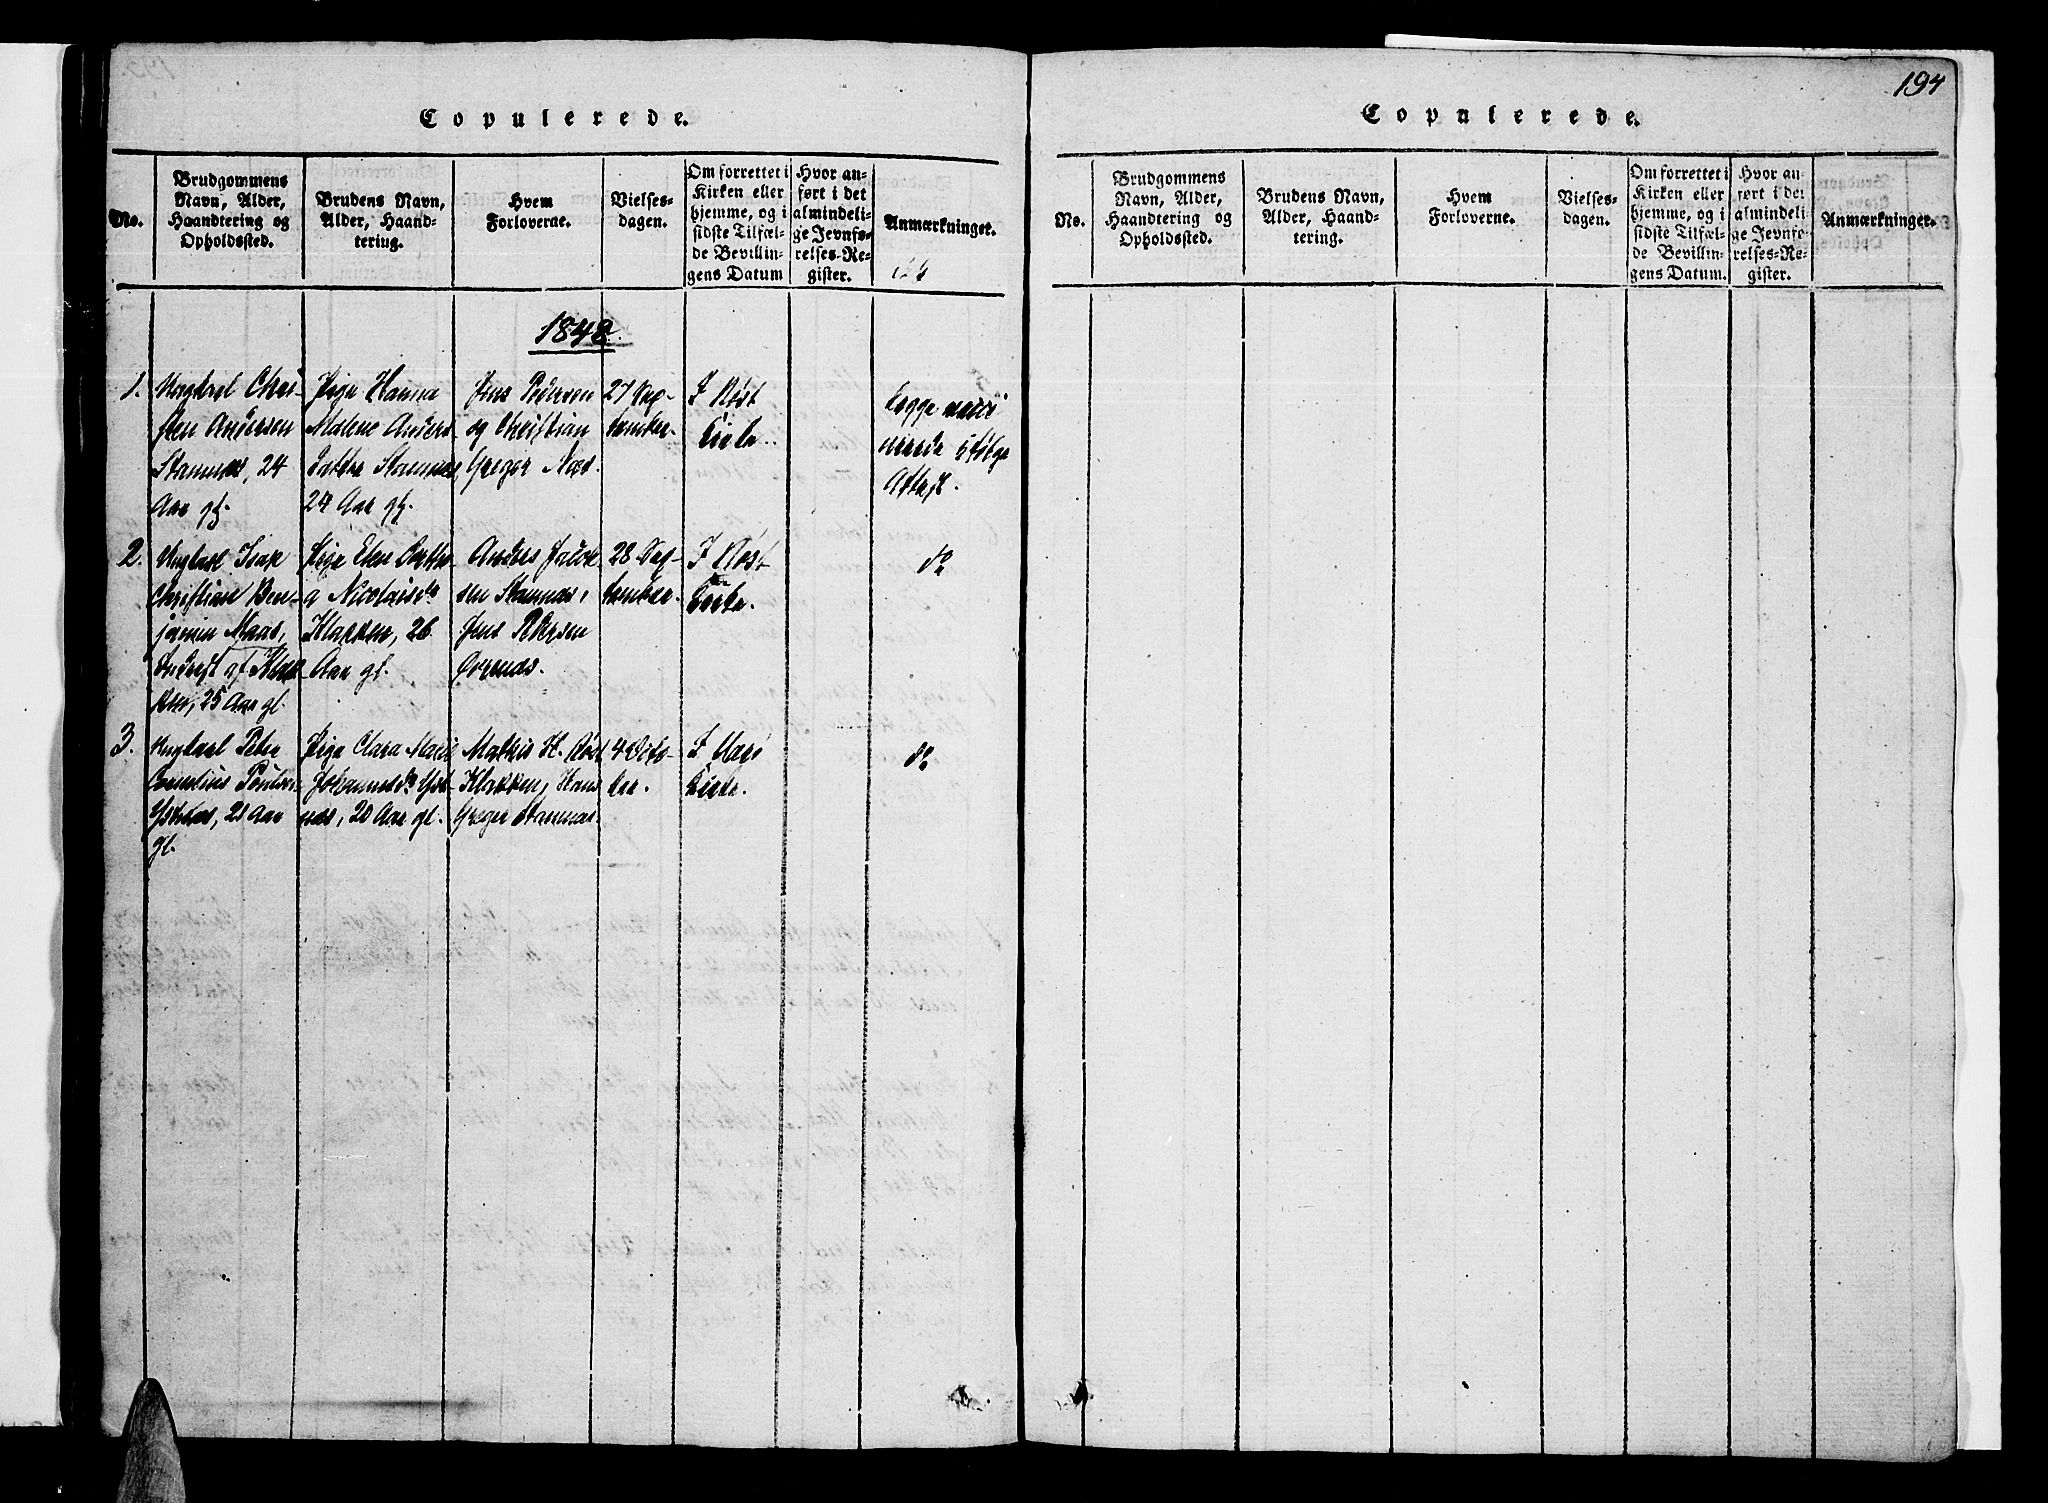 194
Copulerede.
No.
Brudgommens
Navn, Alder,
Haandtering og
Opholdssted.
Brudens Navn,
Alder, Haand-
tering.
Hvem
Forloverne.
Vielses-
dagen.
Om forrettet i
Kirken eller
hjemme, og i
sidste Tilfæl-
de Bevillin-
gens Datum
Hvor an-
ført i det
almindeli-
ge Jevnfø-
relses-Re-
gister.
Anmærkninger.
1848
1.
Ungkarl Chri-
sten Andersen
Stavnæs, 24
Aar gl.
Pige Hanna
Malene Anders-
Datter Stavnæs,
24 Aar gl.
Jens Pedersen
og Christian
Greger Næs.
27 Sep-
tember.
I Røst
Kirke.
begge vacci
nerede ifølge
Attest.
2.
Ungkarl Isak
Christian Ben-
jamin Maas,
af Klak-
ken, 25 Aar gl.
Pige Elen
a Nicolaisdr
Klakken, 26
Aar gl.
Anders Jacob
sen Stavnæs,
Jens Pedersen
28 Sep-
tember.
I Røst
Kirke.
do
3.
Ungkarl Peter
Cornelius Poulsen
Ystnæs, 21 Aar
gl.
Pige Clara Marie
Johannesdr Yst-
næs, 20 Aar gl.
Mathis H. Røst
Klakken, Hans
Greger Stavnæs.
4 Octo-
ber.
I Værø
Kirke.
do
Copulerede.
No.
Brudgommens
Navn, Alder,
Haandtering og
Opholdssted.
Brudens Navn,
Alder, Haand-
tering.
Hvem
Forloverne.
Vielses-
dagen.
Om forrettet i
Kirken eller
hjemme, og i
sidste Tilfæl-
de Bevillin-
gens Datum.
Hvor an-
ført i det
almindeli-
ge Jevnfø-
relses-Re-
gister.
Anmærkninger.